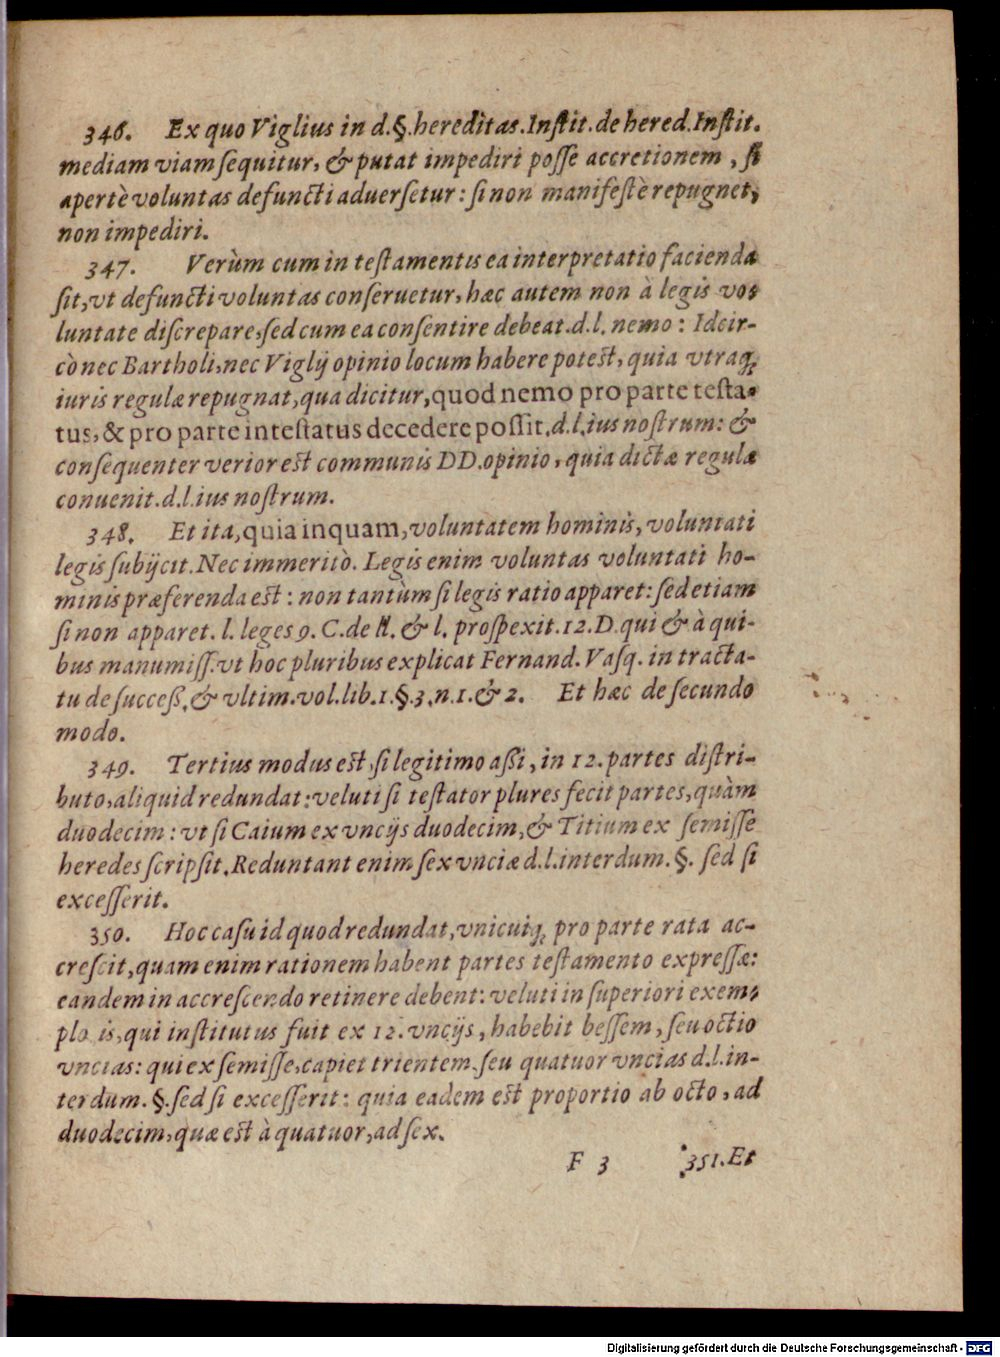 346. Ex quo Viglius in d.§.hereditas.Instit.de hered.Instit.
mediam viam sequitur, & putat impediri posse accretionem, si
apertè voluntas defuncti aduersetur: si non manifestè repugnet,
non impediri.
347. Verùm cum in testamentis ea interpretatio facienda
sit, vt defuncti voluntas conseruetur, hæc autem non à legis vo-
luntate discrepare, sed cum ea consentire debeat.d.l. nemo: Idcir-
cò nec Bartholi, nec Viglij opinio locum habere potest, quia vtraq;
iuris regulæ repugnat, qua dicitur, quod nemo pro parte testa-
tus, & pro parte intestatus decedere possit.d.l.ius nostrum: &
consequenter verior est communis DD.opinio, quia dictæ regulæ
conuenit.d.l.ius nostrum.
348. Et ita, quia inquam, voluntatem hominis, voluntati
legis subijcit. Nec immeritò. Legis enim voluntas voluntati ho-
minis præferenda est: non tantùm si legis ratio apparet: sed etiam
si non apparet. l. leges 9. C. de ll. & l. prospexit.12.D.qui & à qui-
bus manumiss.vt hoc pluribus explicat Fernand. Vasq. in tracta-
tu de success. & vltim.vol.lib.1.§.3.n.1.& 2. Et hæc de secundo
modo.
349. Tertius modus est, si legitimo assi, in 12. partes distri-
buto, aliquid redundat: veluti si testator plures fecit partes, quàm
duodecim: vt si Caium ex vncijs duodecim, & Titium ex semisse
heredes scripsit. Reduntant enim sex vnciæ d.l.interdum.§. sed si
excesserit.
350. Hoc casu id quod redundat, vnicuiq; pro parte rata ac-
crescit, quam enim rationem habent partes testamento expressæ:
eandem in accrescendo retinere debent: veluti in superiori exem-
plo is, qui institutus fuit ex 12. vncijs, habebit bessem, seu octio
vncias: qui ex semisse, capiet trientem seu quatuor vncias d.l.in-
terdum.§.sed si excesserit: quia eadem est proportio ab octo, ad
duodecim, quæ est à quatuor, ad sex.
F 3 351. Et
Digitalisierung gefördert durch die Deutsche Forschungsgemeinschaft - DFG